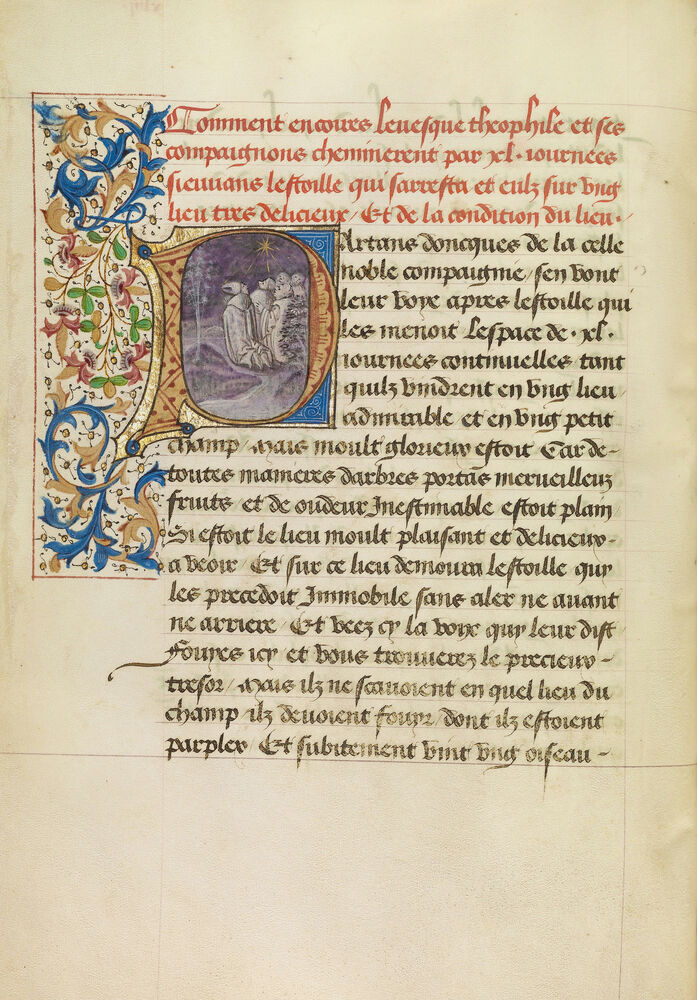 Comment encores levesque theophile et ses
compaignons cheminerent par xl. iournees
sieuvans lestoille qui sarresta et eulz sur ung
lieu tres delicieux / Et de la condition du lieu .
Partans doncques de la celle
noble compaignie / sen vont
leur voye apres lestoille qui
les menoit Lespace de .xl.
iournees continuelles tant
quilz vindrent en ung lieu
admirable et en ung petit
champ / mais moult glorieux estoit Car de-
toutes manieres darbres portās merveilleuz
fruits et de oudeur Inestimable estoit plain
Si estoit le lieu moult plaisant et delicieux-
a veoir / Et sur ce lieu demoura lestoille quy
les precedoit Immobile sans aler ne avant
ne arriere / Et veez cy la voix quy leur dist
Fouyes icy et vous trouverez le precieux -
tresor / mais ilz ne scavoient en quel lieu du
champ ilz devoient fouyr / dont ilz estoient
parplex / Et subitement vint ung oiseau -